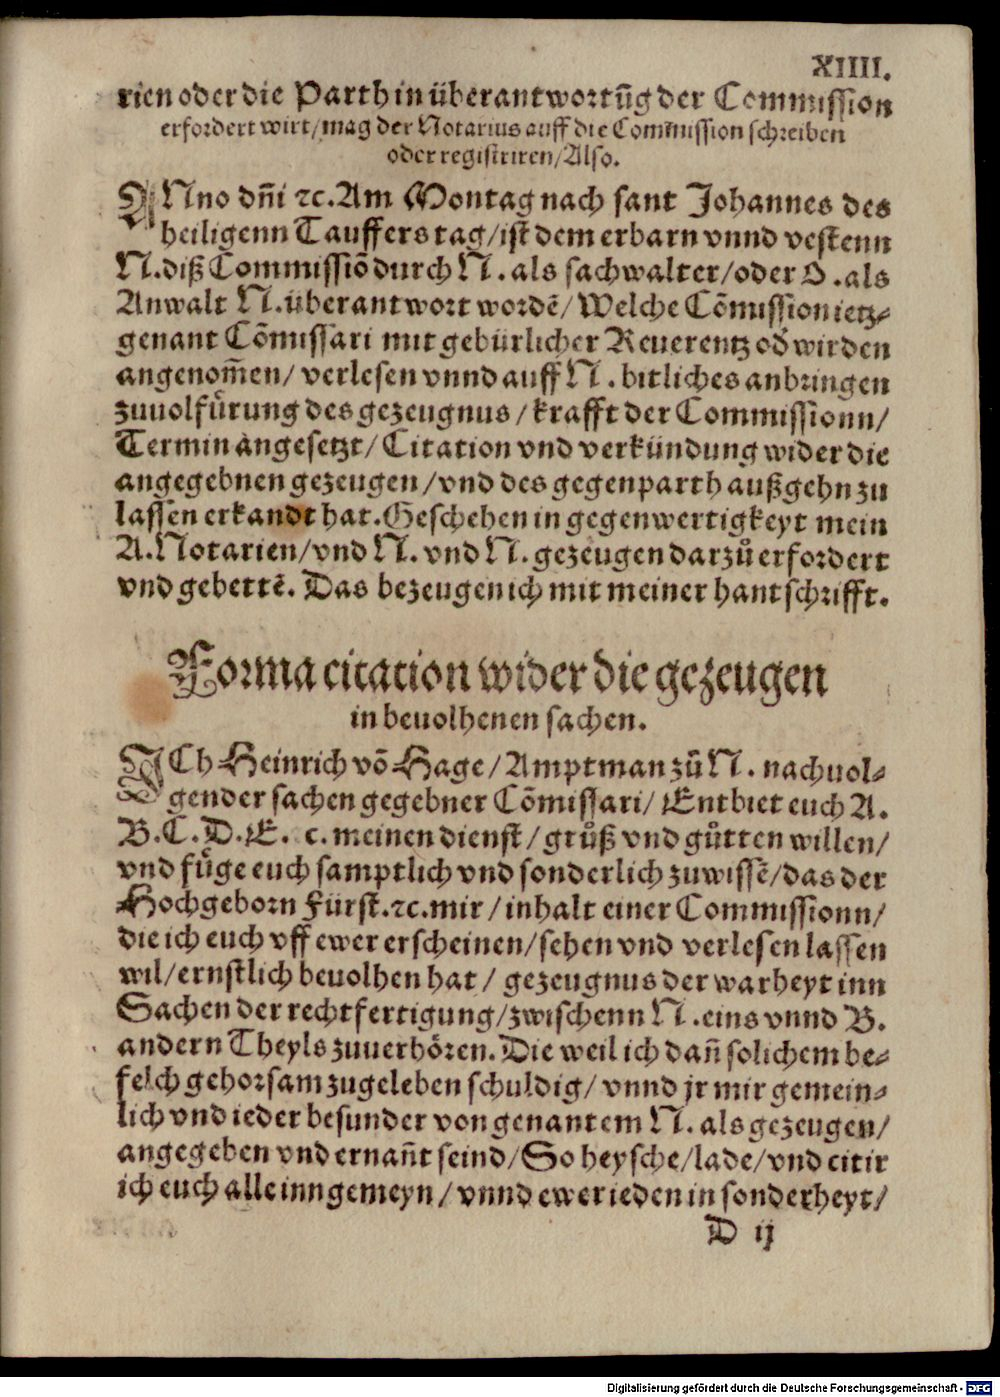 XIIII.
rien oder die Parth in überantwortũg der Commission
erfordert wirt/mag der Notarius auff die Com̃ission schreiben
oder registriren/Also.
ANno dñi ꝛc. Am Montag nach sant Johannes des
heiligenn Tauffers tag/ist dem erbarn vnnd vestenn
N. diß Commissiõ durch N. als sachwalter/oder O. als
Anwalt N. überantwort wordẽ/ Welche Cõmission ietz-
genant Cõmissari mit gebürlicher Reuerentz od̛ wirden
angenom̃en/ verlesen vnnd auff N. bitliches anbringen
zuuolfuͤrung des gezeugnus/ krafft der Commissionn/
Termin angesetzt/ Citation vnd verkündung wider die
angegebnen gezeugen/vnd des gegenparth außgehn zu
lassen erkandt hat. Geschehen in gegenwertigkeyt mein
A. Notarien/vnd N. vnd N. gezeugen darzuͦ erfordert
vnd gebettẽ. Das bezeugen ich mit meiner hantschrifft.
Forma citation wider die gezeugen
in beuolhenen sachen.
ICh Heinrich võ Hage/Amptman zů N. nachuol-
gender sachen gegebner Cõmissari/ Entbiet euch A.
B. C. D. E. ꝛc. meinen dienst/ gruͦß vnd guͦtten willen/
vnd fuͤge euch samptlich vnd sonderlich zuwissẽ/das der
Hochgeborn Fürst.ꝛc. mir/inhalt einer Commissionn/
die ich euch vff ewer erscheinen/sehen vnd verlesen lassen
wil/ernstlich beuolhen hat/ gezeugnus der warheyt inn
Sachen der rechtfertigung/zwischenn N. eins vnnd B.
andern Theyls zuuerhoͤren. Die weil ich dañ solichem be-
felch gehorsam zugeleben schuldig/ vnnd jr mir gemein-
lich vnd ieder besunder von genantem N. als gezeugen/
angegeben vnd ernañt seind/So heysche/lade/vnd citir
ich euch alle inn gemeyn/ vnnd ewer ieden in sonderheyt/
D ij
Digitalisierung gefördert durch die Deutsche Forschungsgemeinschaft - DFG